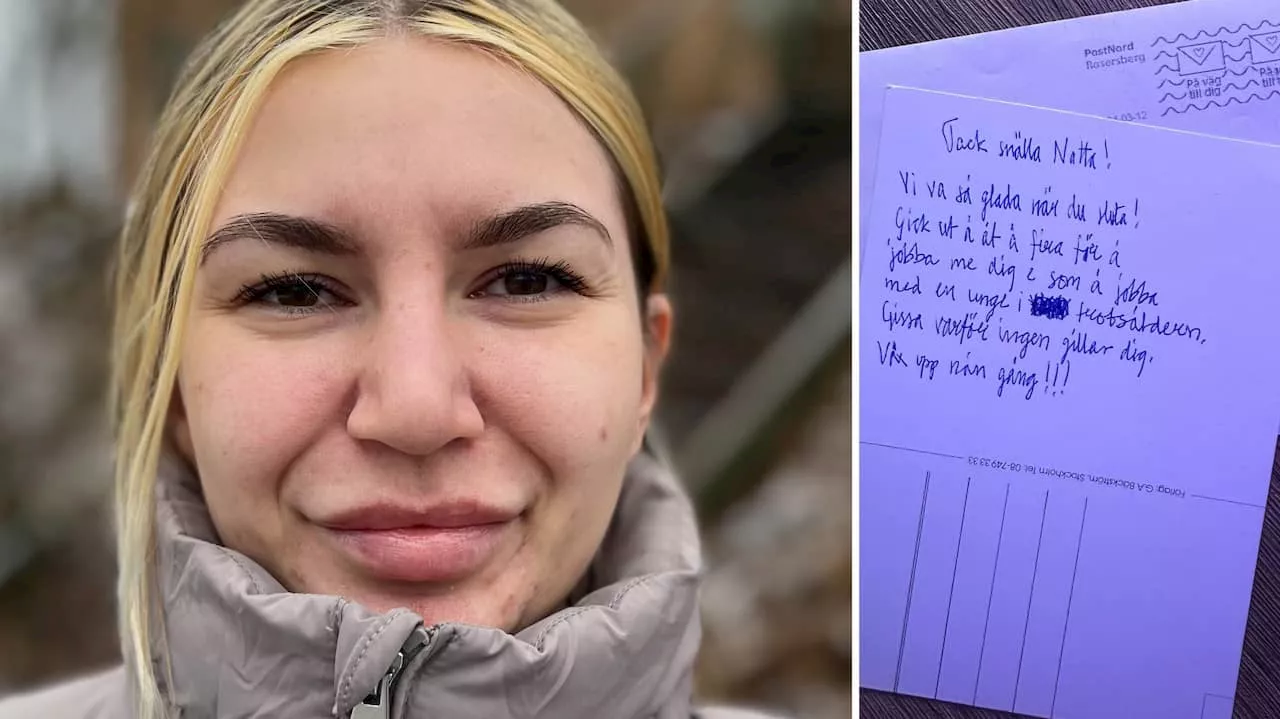 PostNord
Rosersberg
På väg
till dig
På v
till
03-12
Tack snälla Natta!
Vi va så glada när du sluta!
Gick ut å åt å fira för å
jobba me dig e som å jobba
med en unge i trotsåldern.
Gissa varför ingen gillar dig.
Väx upp nån gång!!!
Förlag: G.A Bäckström, Stockholm Tel: 08-749 33 33